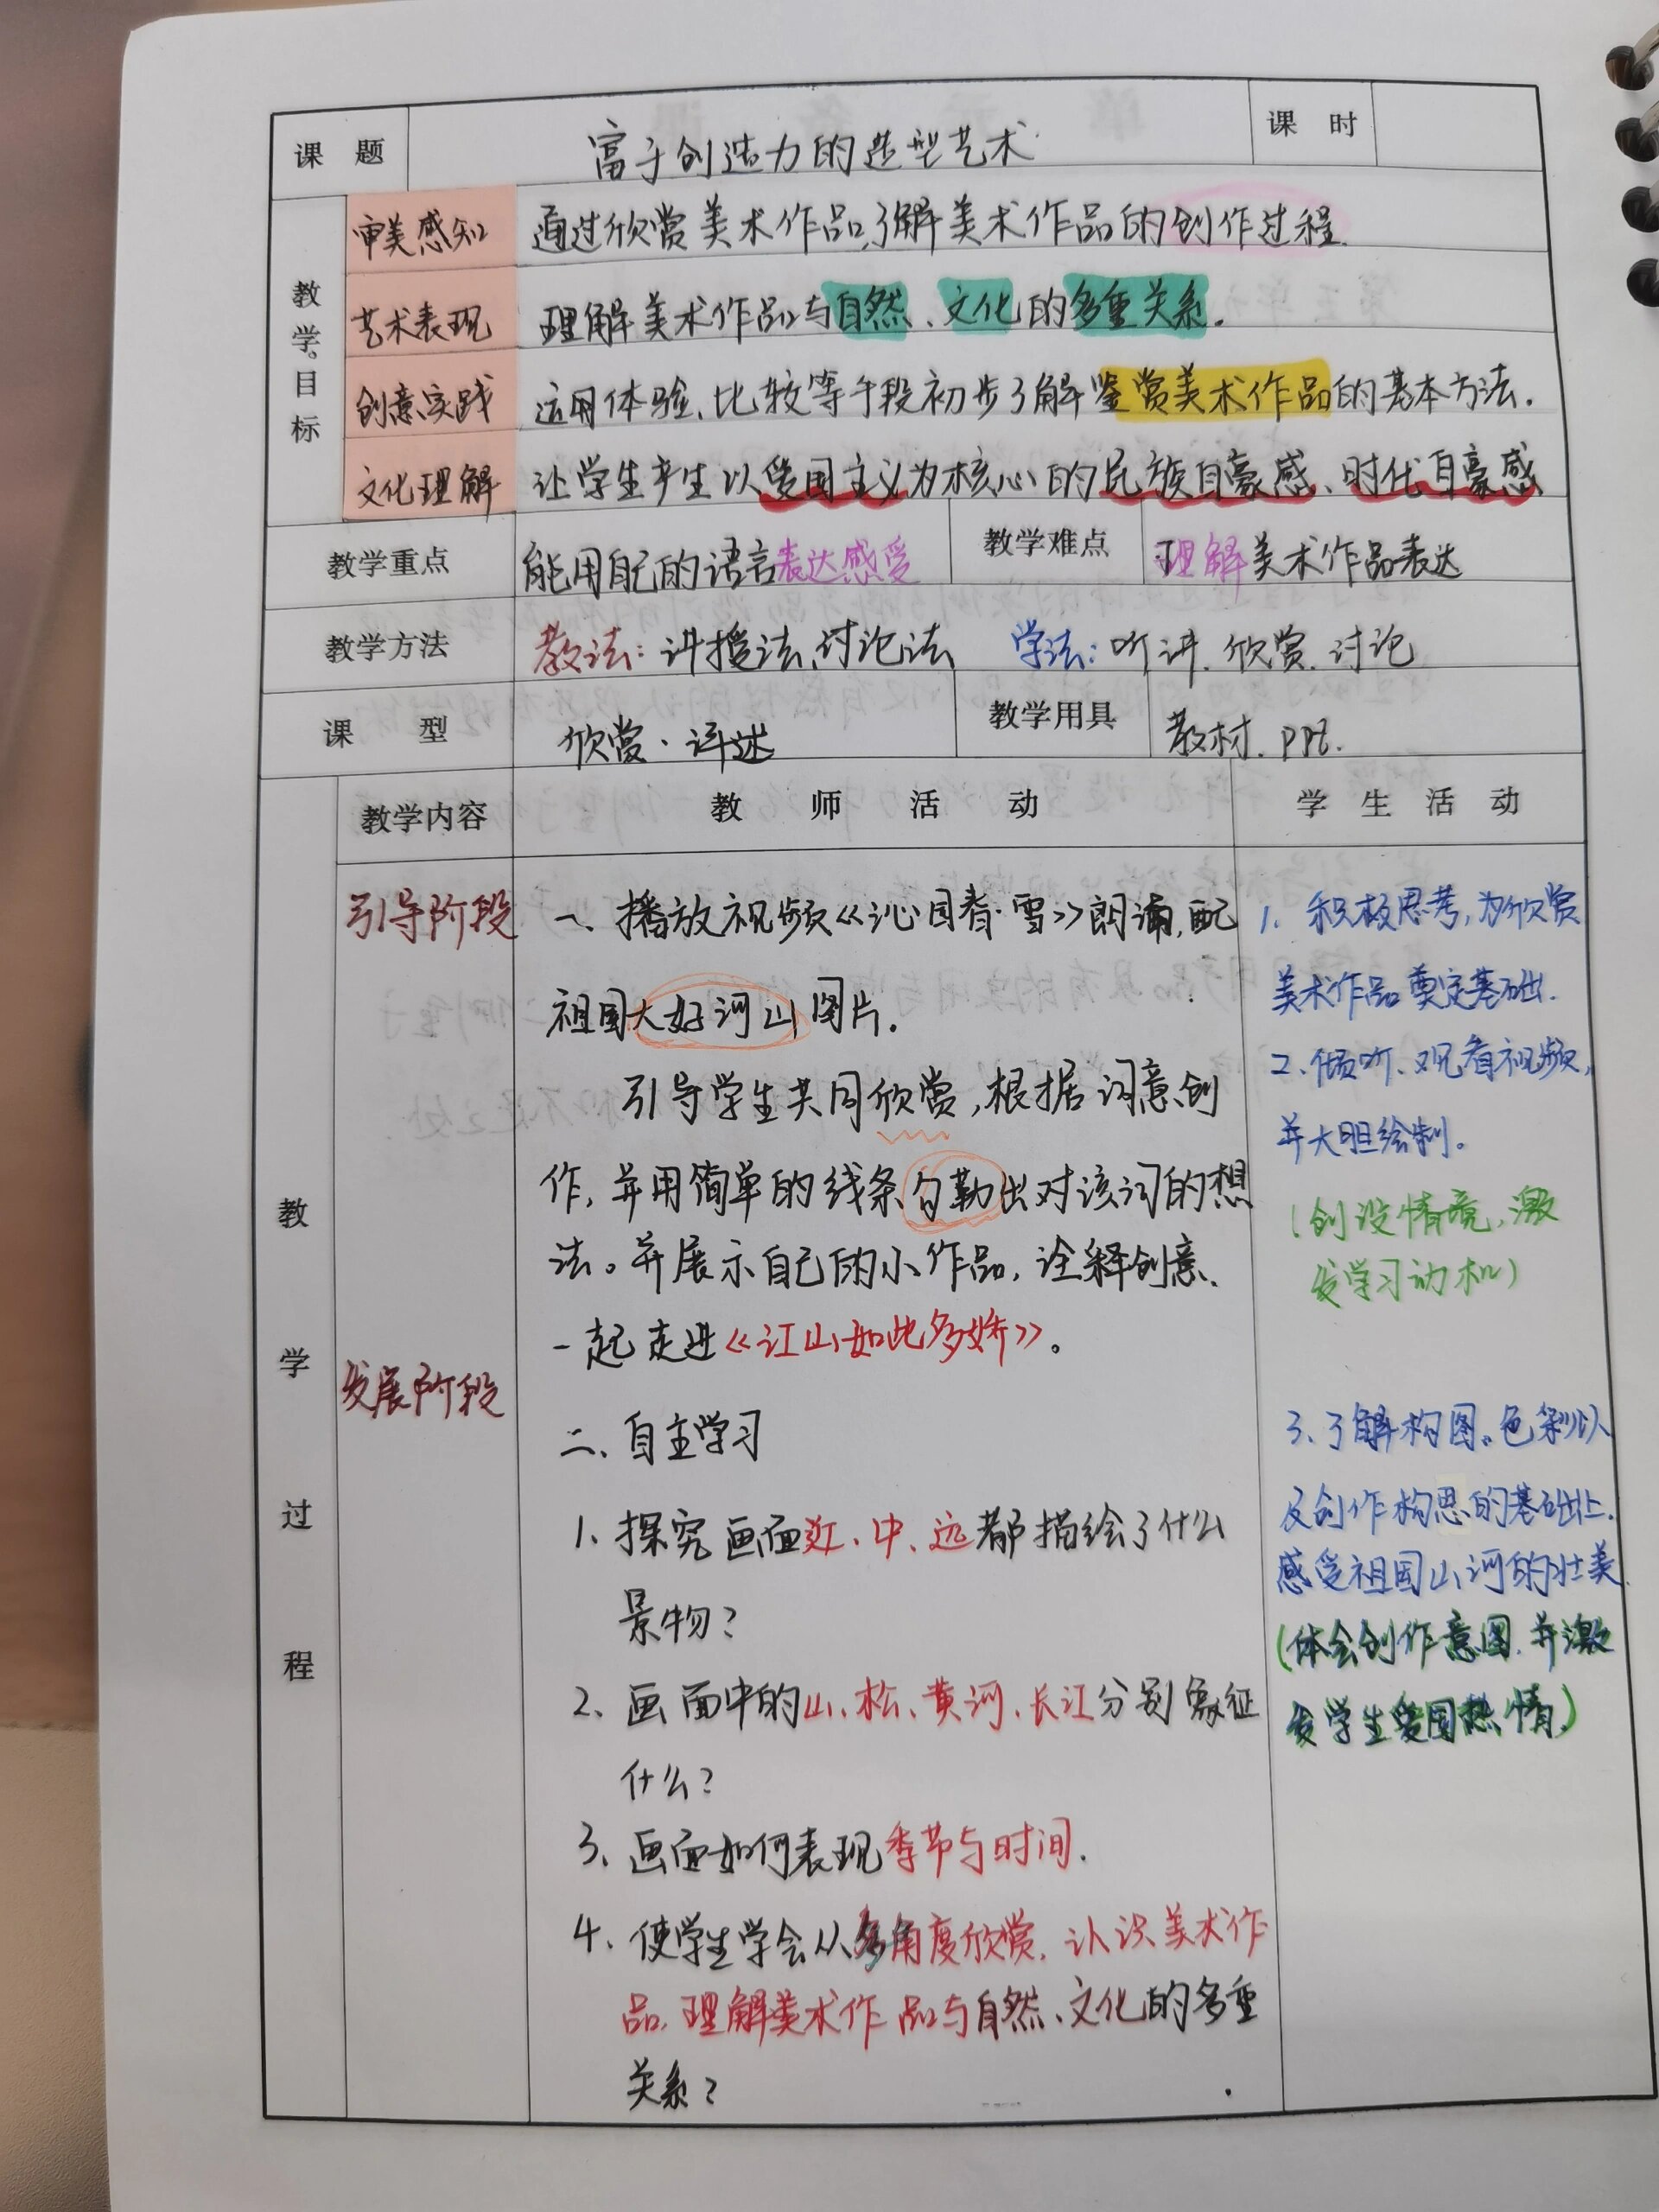 课 题 富于创造力的造型艺术 课 时
教学目标
审美感知 通过欣赏美术作品,了解美术作品的创作过程.
艺术表现 理解美术作品与自然、文化的多重关系.
创意实践 运用体验、比较等手段初步了解鉴赏美术作品的基本方法.
文化理解 让学生产生以爱国主义为核心的民族自豪感、时代自豪感
教学重点 能用自己的语言表达感受 教学难点 理解美术作品表达
教学方法 教法:讲授法、讨论法 学法:听讲.欣赏.讨论
课 型 欣赏·评述 教学用具 教材.ppt.
教学过程
教学内容 教 师 活 动 学 生 活 动
引导阶段
一、播放视频《沁园春·雪》朗诵,配
祖国大好河山图片.
引导学生共同欣赏,根据词意创
作,并用简单的线条勾勒出对该词的想
法。并展示自己的小作品,诠释创意.
一起走进《江山如此多娇》。
发展阶段
二、自主学习
1、探究画面近、中、远都描绘了什么
景物?
2、画面中的山、松、黄河、长江分别象征
什么?
3、画面如何表现季节与时间.
4、使学生学会从多角度欣赏.认识美术作
品.理解美术作品与自然、文化的多重
关系?
1. 积极思考,为欣赏
美术作品奠定基础.
2、倾听、观看视频,
并大胆绘制。
(创设情境,激
发学习动机)
3、了解构图。色彩以
及创作构思的基础上.
感受祖国山河的壮美.
(体会创作意图.并激
发学生爱国热情.)